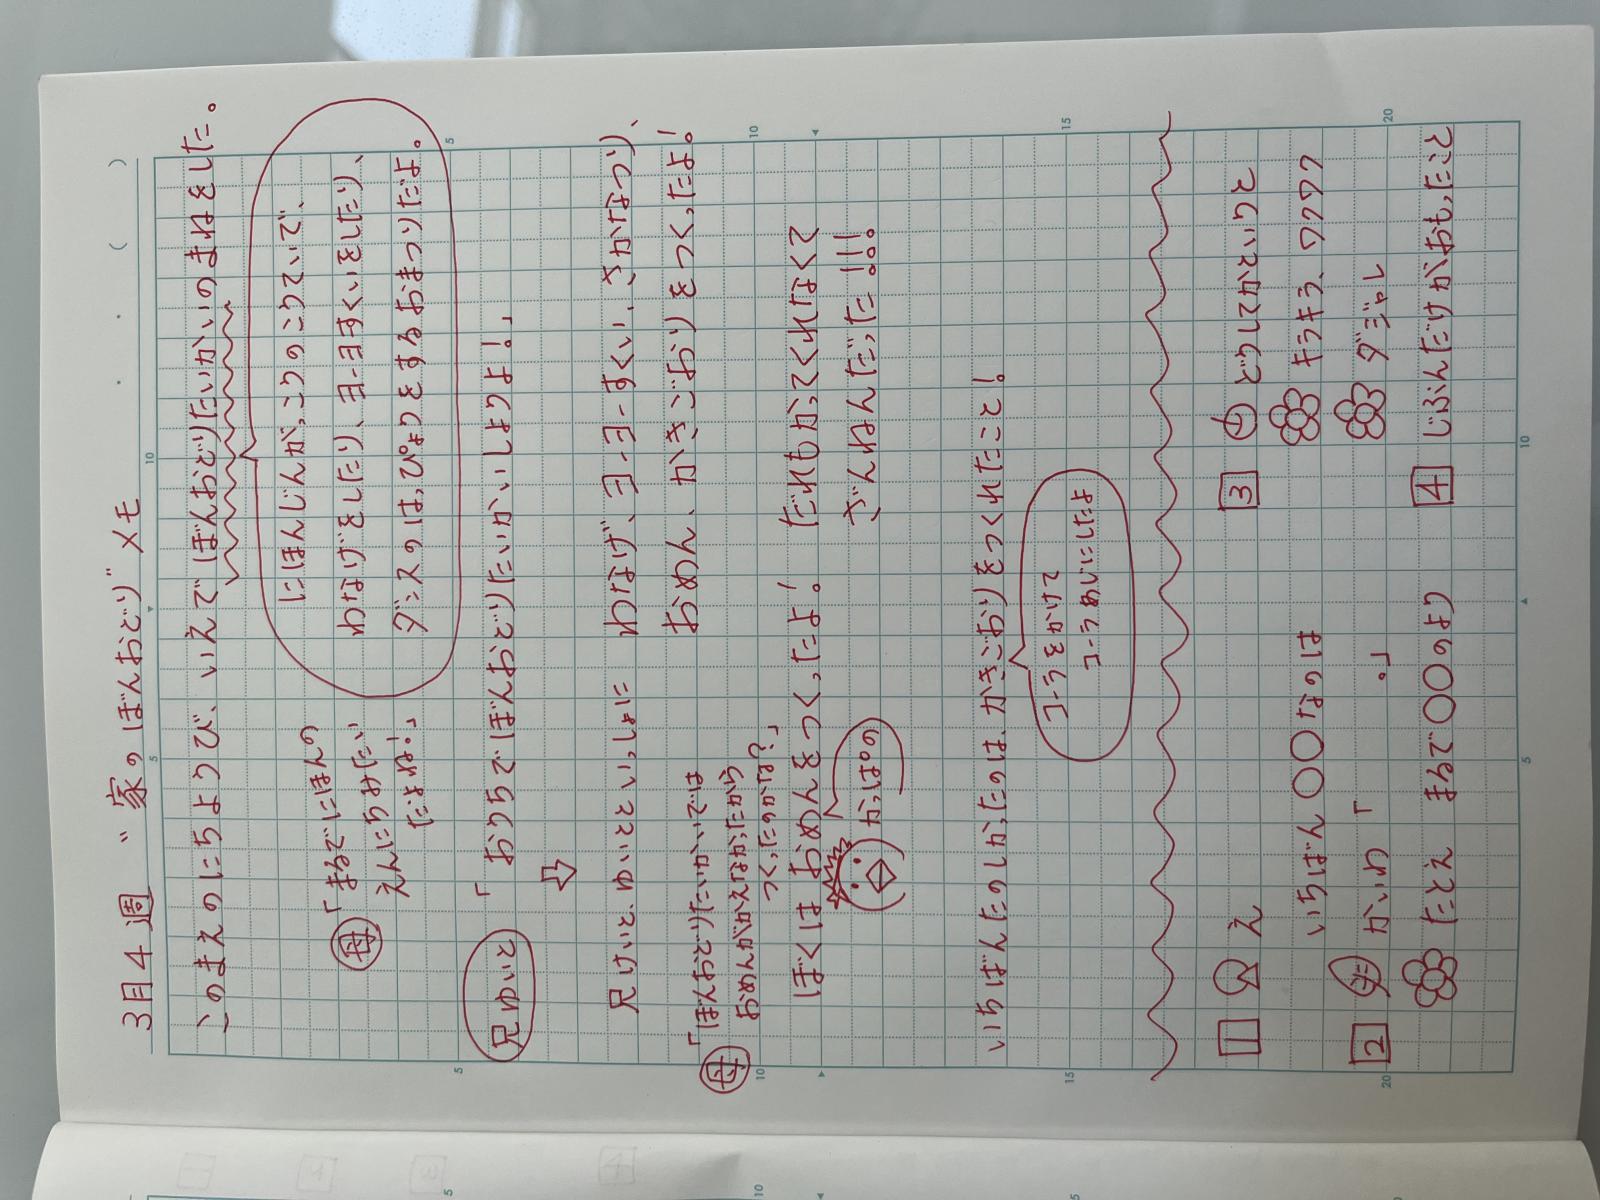 3月4週 "家のぼんおどり"メモ
このまえのにちようび、いえでぼんおどりたいかいのまねをした。
にほんじんが、こりのこりていで、
わなげをしたり、ヨーヨーすくいをしたり、
ダンスのはっぴょうをするおまつりだよ。
母
「まるでにほんの
えんにちみたい
だよね!」
兄ゆいと
「ぼくらも、ぼんおどりたいかいしようよ!」
⇩
兄、けいと、ゆいと、いちか
わなげ、ヨーヨーすくい、さかなつり、
おめん、かきごおりをつくったよ!
母
「ぼんおどり、たいかいといえば
おめんやかくれがたからばこ
つくったらいいよね?」
ぼくはおめんをつくったよ!
だれもかってくれなくて
ざんねんだった!!!
かじゃもの
いちばんたのしかったのはかきごおりをつくれたこと!
ユーとうめいにしたよ
ユーとうふかいと
1 え
いちばん○○なのは
2 た かいわ「 」。
た とえば、まるで○○のよう
3 じてしかいりと
キラキラ、ワクワク
ダジャレ
4 じぶんだけがおもったこと